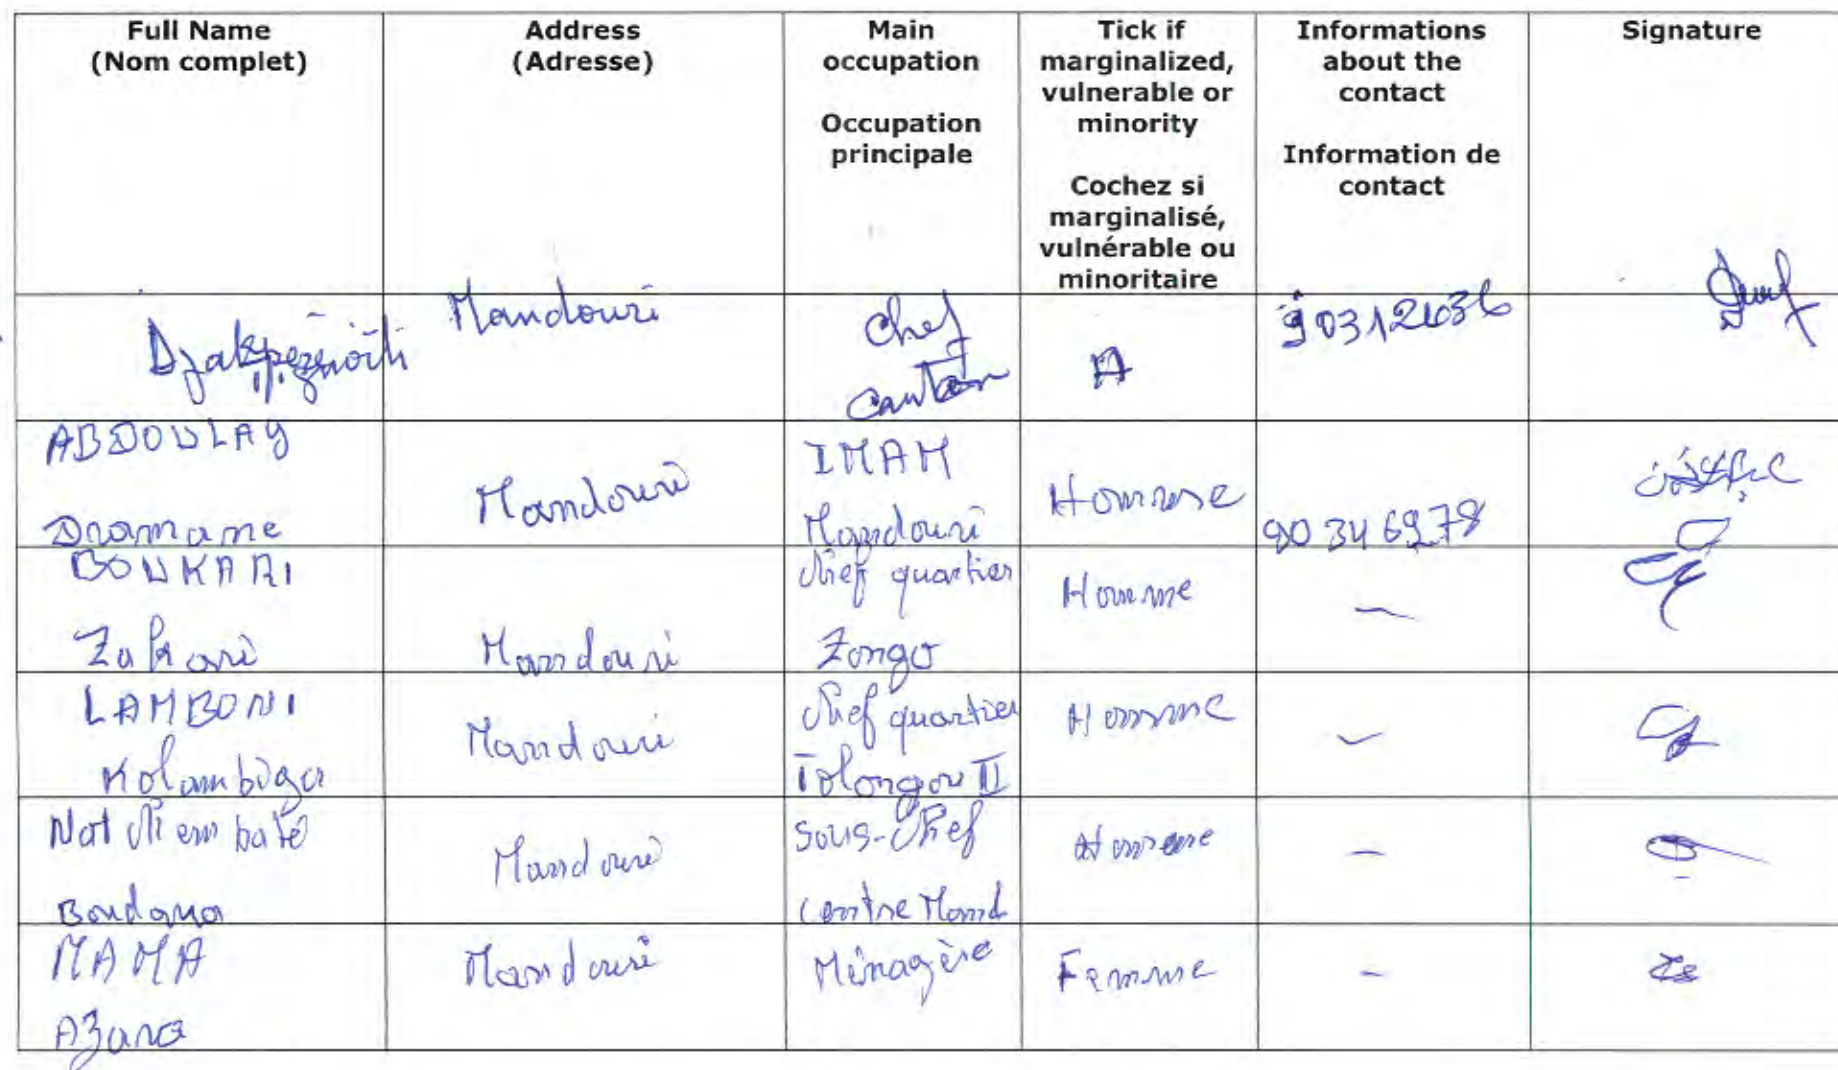 Full Name
(Nom complet)
Address
(Adresse)
Main
occupation
Occupation
principale
Tick if
marginalized,
vulnerable or
minority
Cochez si
marginalisé,
vulnérable ou
minoritaire
Informations
about the
contact
Information de
contact
Signature
Mandouri
Chef
canton
90312636
ABDOULAY
Dramane
Mandouri
IMAM
Mandouri
Homme
90346978
BOUKARI
Zakari
Mandouri
chef quartier
Zongo
Homme
LAMBONI
Kolambiga
Mandouri
chef quartier
Tolongou II
Homme
Natchiembaté
Boudana
Mandouri
Sous-chef
centre Mand
Homme
MAMA
Azara
Mandouri
Ménagère
Femme